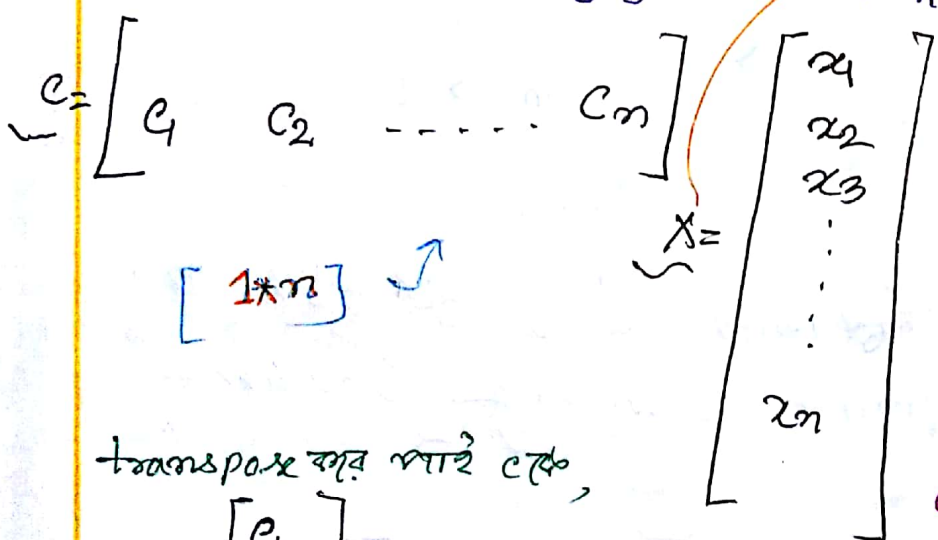 C = [ C1 C2 ----- Cn ]
[ 1*n ]
X = [ x1
x2
x3
⋮
xn ]
transpose করে পাই c কে,
[ C1 ]